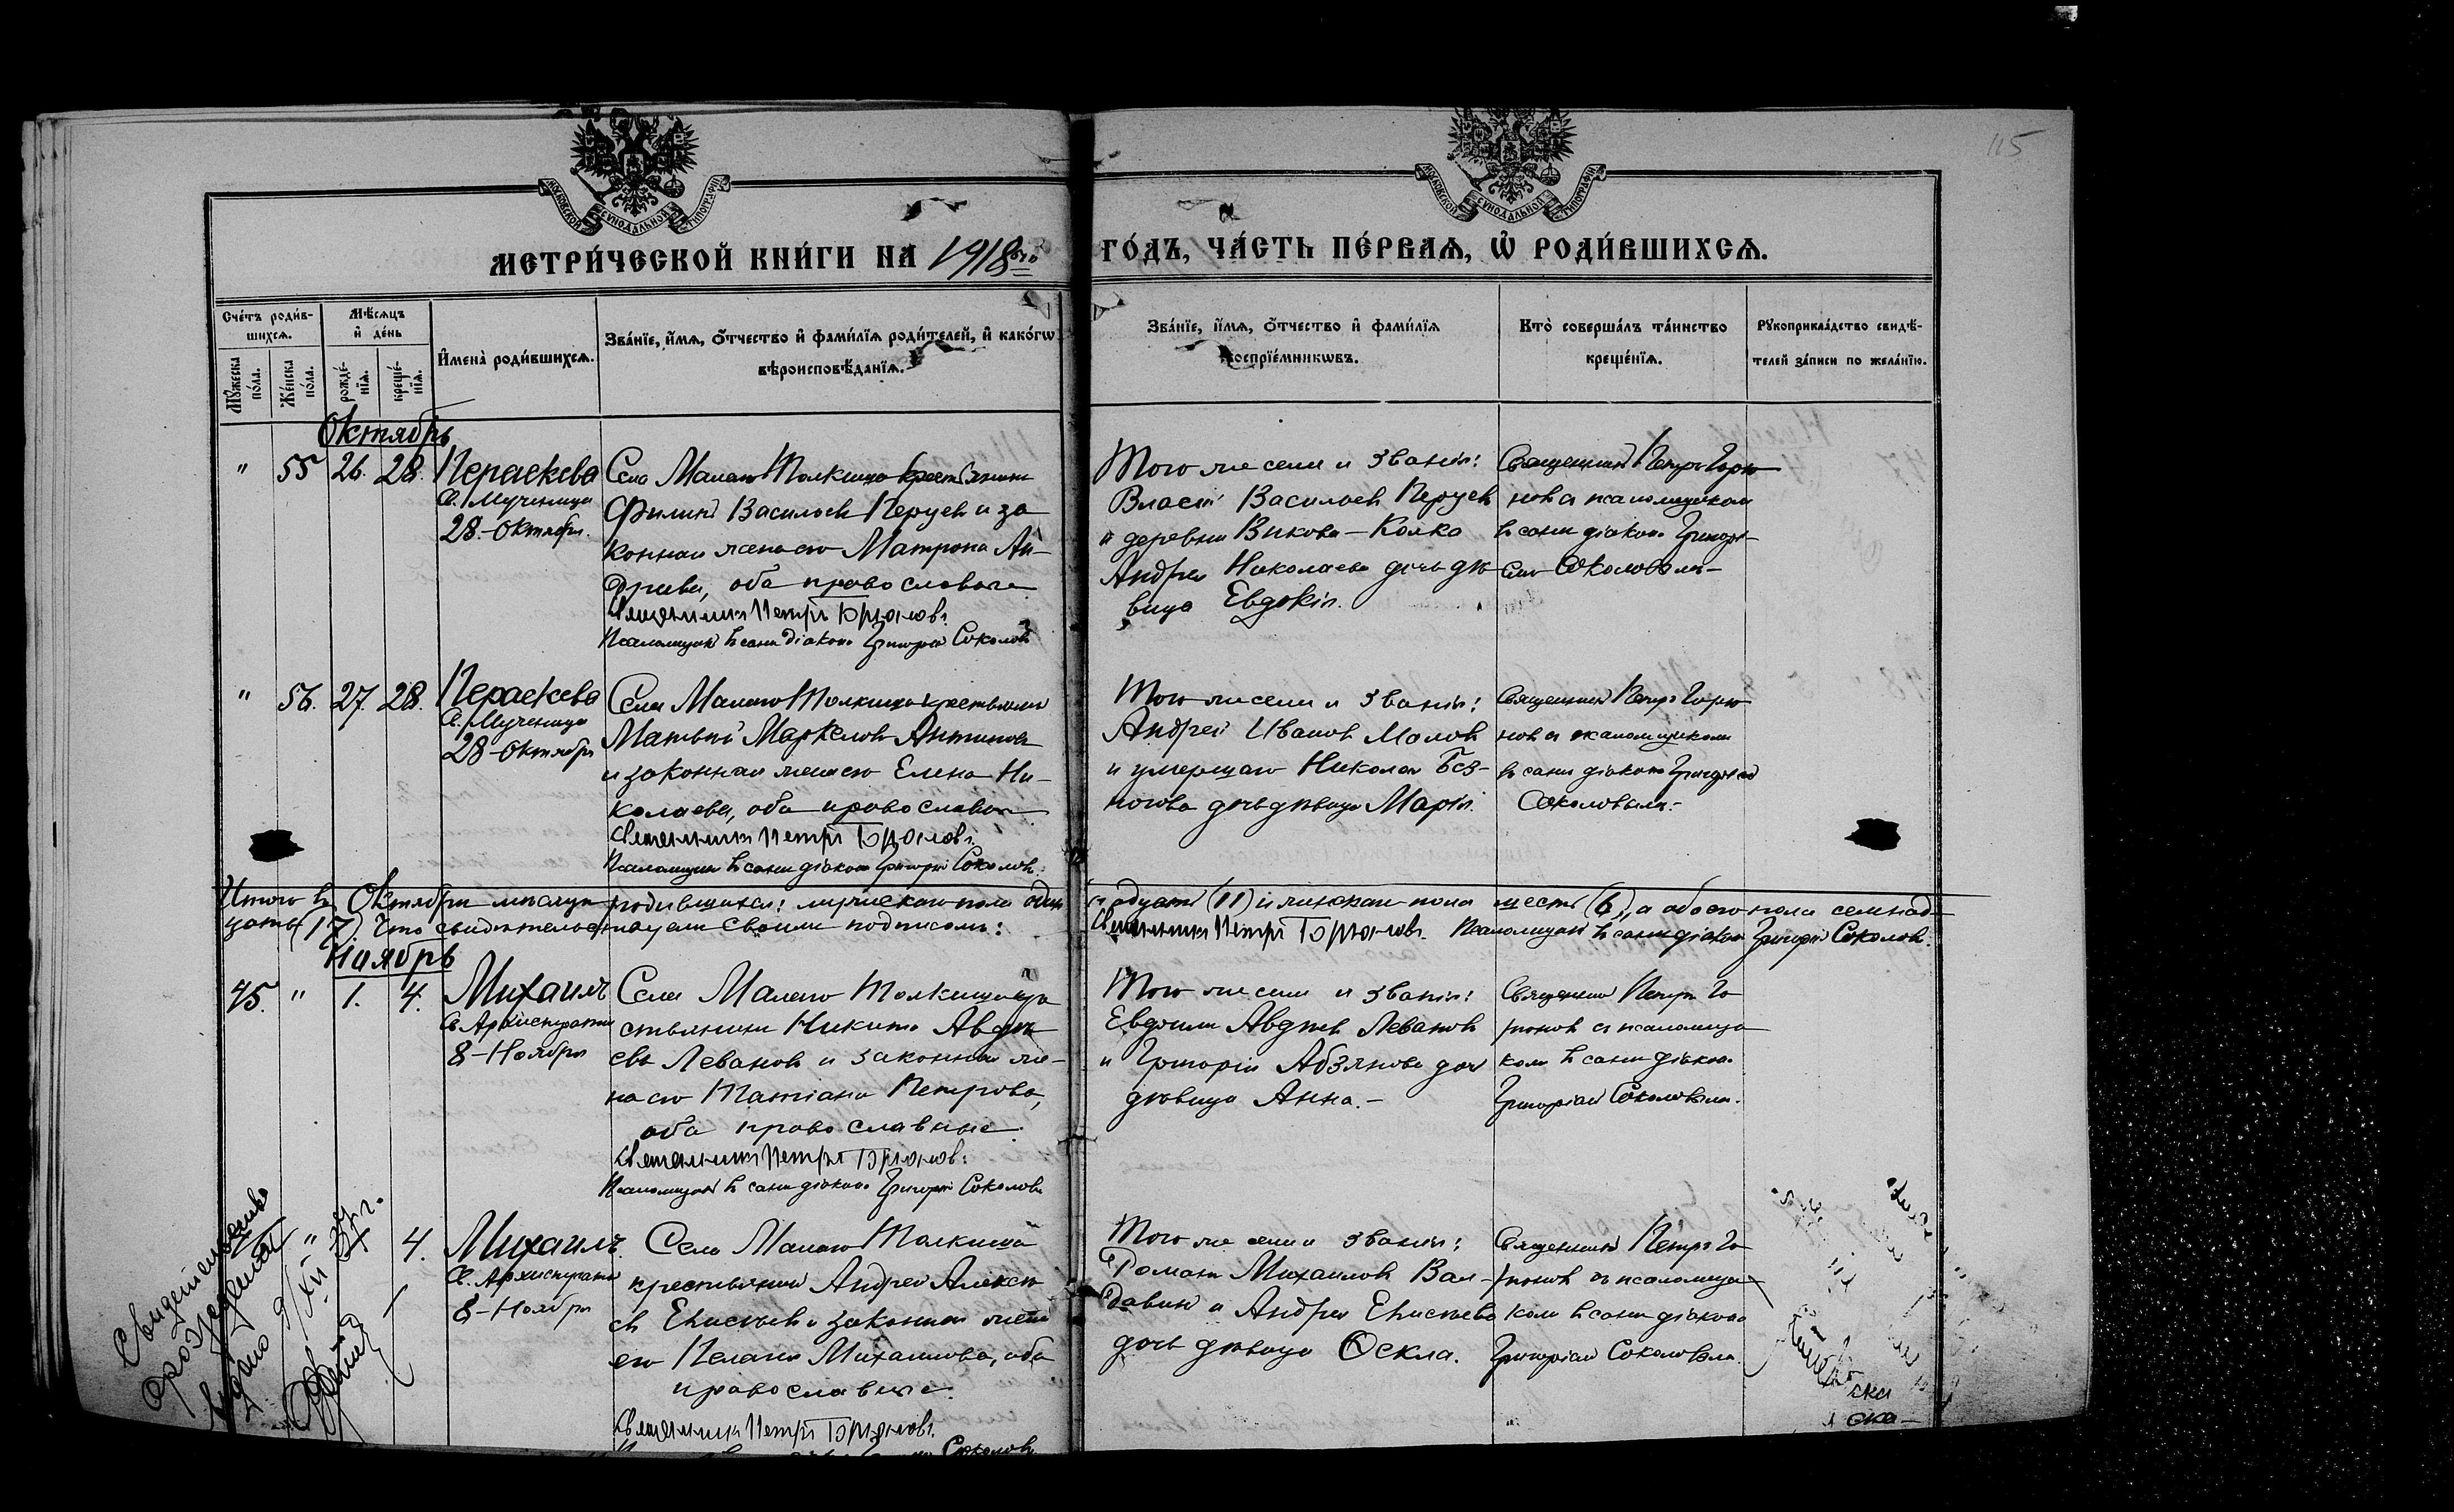 115
МОСКОВСКОЙ СѴНОДАЛЬНОЙ ТИПОГРАФІИ
МОСКОВСКОЙ СѴНОДАЛЬНОЙ ТИПОГРАФІИ
МЕТРИ́ЧЕСКОЙ КНИ́ГИ НА 1918 ГО́ДЪ, ЧА́СТЬ ПЕ́РВАѦ, Ѡ҆ РОДИ́ВШИХСѦ.
Сче́тъ роди́в-
шихсѧ.
Мꙋ́жеска по́ла.
Же́нска по́ла.
Мѣ́сѧцъ
и҆ де́нь
рожде́-
нїѧ.
креще́-
нїѧ.
И҆мена̀ роди́вшихсѧ.
Зва́нїе, и҆́мѧ, ѻ҆́тчество и҆ фами́лїѧ роди́телей, и҆ како́гѡ
вѣроисповѣ́данїѧ.
Зва́нїе, и҆́мѧ, ѻ҆́тчество и҆ фами́лїѧ
воспрїе́мникѡвъ.
Кто̀ соверша́лъ та́инство
креще́нїѧ.
Рꙋкоприкла́дство свидѣ́-
телей за́писи по жела́нїю.
Октябрь
" 55 26. 28. Параскева
Св. Мученица
28-Октября.
Села Малаго Толкиша крестьянин
Филипп Васильев Перуев и за
конная жена его Матрона Ан-
дреева, оба православные
Священник Петр Горюнов.
Псаломщик в сане диакона Григорий Соколов
Того же села и звания:
Власий Васильев Перуев
и деревни Викова-Колка
Андрея Николаева дочь дѣ
вица Евдокія.
Священник Петр Горю
нов с псаломщиком
в сане діакона Григорі-
ем Соколовым-
" 56. 27. 28. Параскева
Св. Мученица
28-Октября
Села Малаго Толкиша крестьянин
Матвей Маркелов Антипов
и законная жена его Елена Ни-
колаева, оба православные
Священник Петр Горюнов.
Псаломщик в сане діакона Григорій Соколов.
Того же села и званія:
Андрей Иванов Малов
и умершаго Николая Без-
ногова дочь дѣвица Марія.
Священник Петр Горю
нов с псаломщиком
в сане діакона Григорием
Соколовым.-
Итого в Октябрѣ мѣсяцѣ родившихся: мужескаго пола один
надцать (11) и женскаго пола шесть (6), а обоего пола семнад-
цать (17). Что свидетельствуем своими подписями:
Священник Петр Горюнов. Псаломщик в сане діакона Григорій Соколов.
Ноябрь
45. " 1. 4. Михаилъ
Св. Архистратига
8-Ноября
Села Малаго Толкиша кре
стьянин Никита Авдѣ
евъ Леванов и законная же-
на его Татіана Петрова,
оба православные
Священник Петр Горюнов.
Псаломщик в сане діакона Григорій Соколов
Того же села и званія:
Евдоким Авдѣев Леванов
и Григорія Абзянова дочь
дѣвица Анна.-
Священник Петр Го
рюнов с псаломщи
ком в сане діакона
Григоріем Соколовым.
" 4. Михаилъ.
Св. Архистратига
8-Ноября
Села Малаго Толкиша
крестьянин Андрей Алексѣ
ев Елисѣев и законная жена
его Пелагия Михаилова, оба
православные.
Священник Петр Горюнов.
Соколов
Того же села и званія:
Роман Михаилов
и Андрея Елисѣева
дочь дѣвица Ѳекла.
Священник Петр Го
рюнов с псаломщи
ком в сане діакона
Григоріем Соколовым.
Свидетельство
о рождении
выдано 9/XII 37 г.